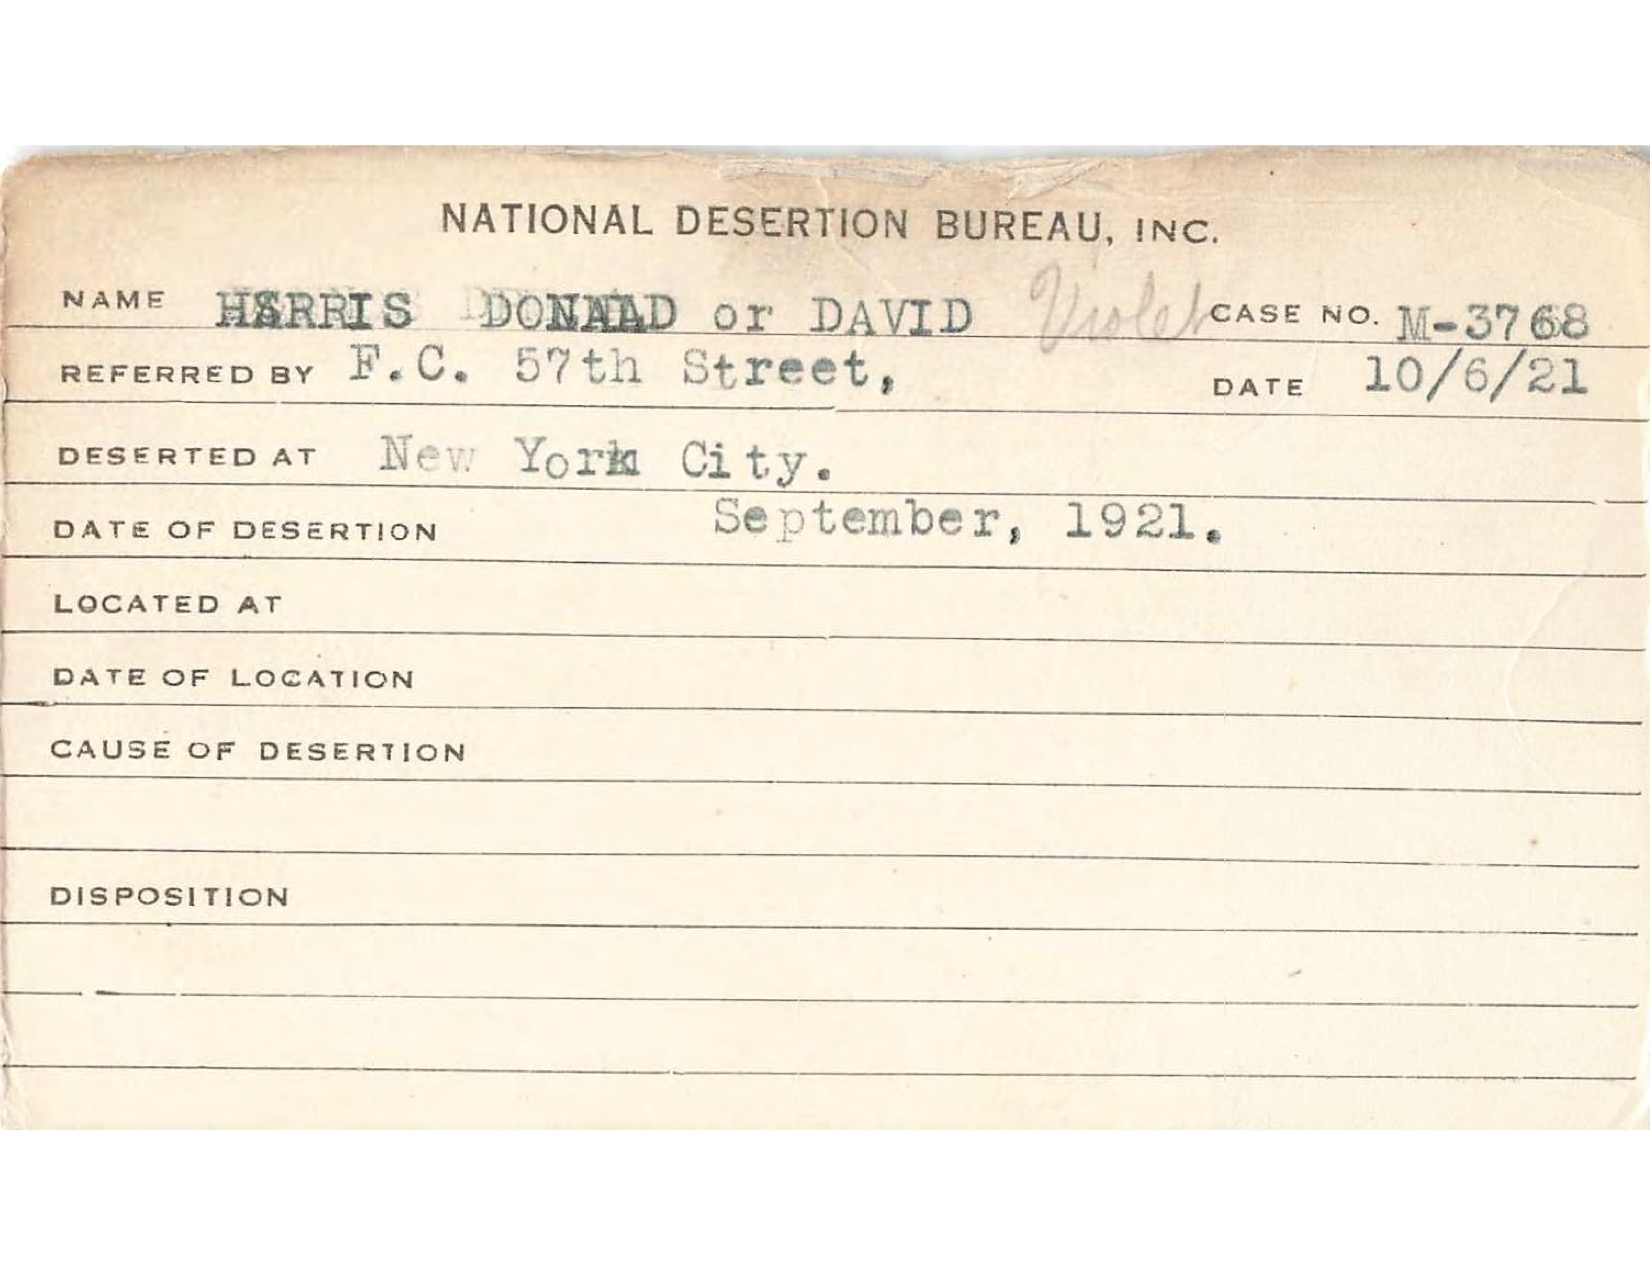 NATIONAL DESERTION BUREAU, INC.
NAME HARRIS DONALD or DAVID Violet CASE NO. M-3768
REFERRED BY F.C. 57th Street, DATE 10/6/21
DESERTED AT New York City.
DATE OF DESERTION September, 1921.
LOCATED AT
DATE OF LOCATION
CAUSE OF DESERTION
DISPOSITION